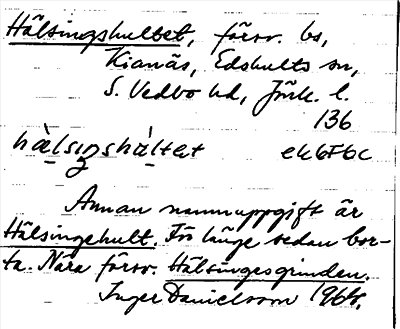 Hälsingshultet, försv. bs,
Kianäs, Edshults sn,
S. Vedbo hd, Jönk. l.
136
hälsiŋshàltet ek6F6c
Annan namnuppgift är
Hälsingehult. För länge sedan bor-
ta. Nära försv. Hälsingesgrinden.
Inger Danielsson 1968.